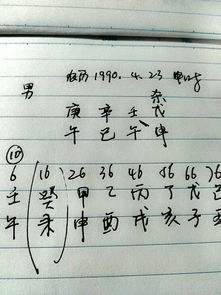 男 农历1990.4.23 申时
癸
庚 辛 壬 戊
午 巳 午 申
⑩
6 16 26 36 46 56 66 76
壬 癸 甲 乙 丙 丁 戊 己
午 未 申 酉 戌 亥 子 丑